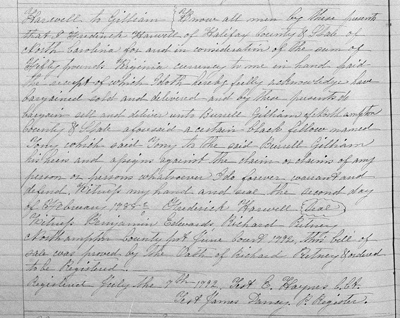 Harwell to Gilliam Know all men by these presents
that I Frederick Harwell of Halifax County & State of
North Carolina for and in consideration of the sum of
Fifty pounds Virginia currency to me in hand paid
the receipt of which I doth hereby fully acknowledge have
bargained sold and delivered and by these presents do
bargain sell and deliver unto Burrell Gilliam of Northampton
County & State aforesaid a certain black fellow named
Tony which said Tony to the said Burrell Gilliam
his heirs and assigns against the claim or claims of any
person or persons whatsoever I do forever warrant and
defend. Witness my hand and seal the second day
of February 1788 Frederick Harwell Seal
Witness Benjamin Edwards, Richard Putney
Northampton County June Court 1792, this bill of
sale was proved by the Oath of Richard Putney & ordered
to be Registered.
Registered July the 9th 1792 Test E. Haynes C.Ct.
Test James Dancy P. Register